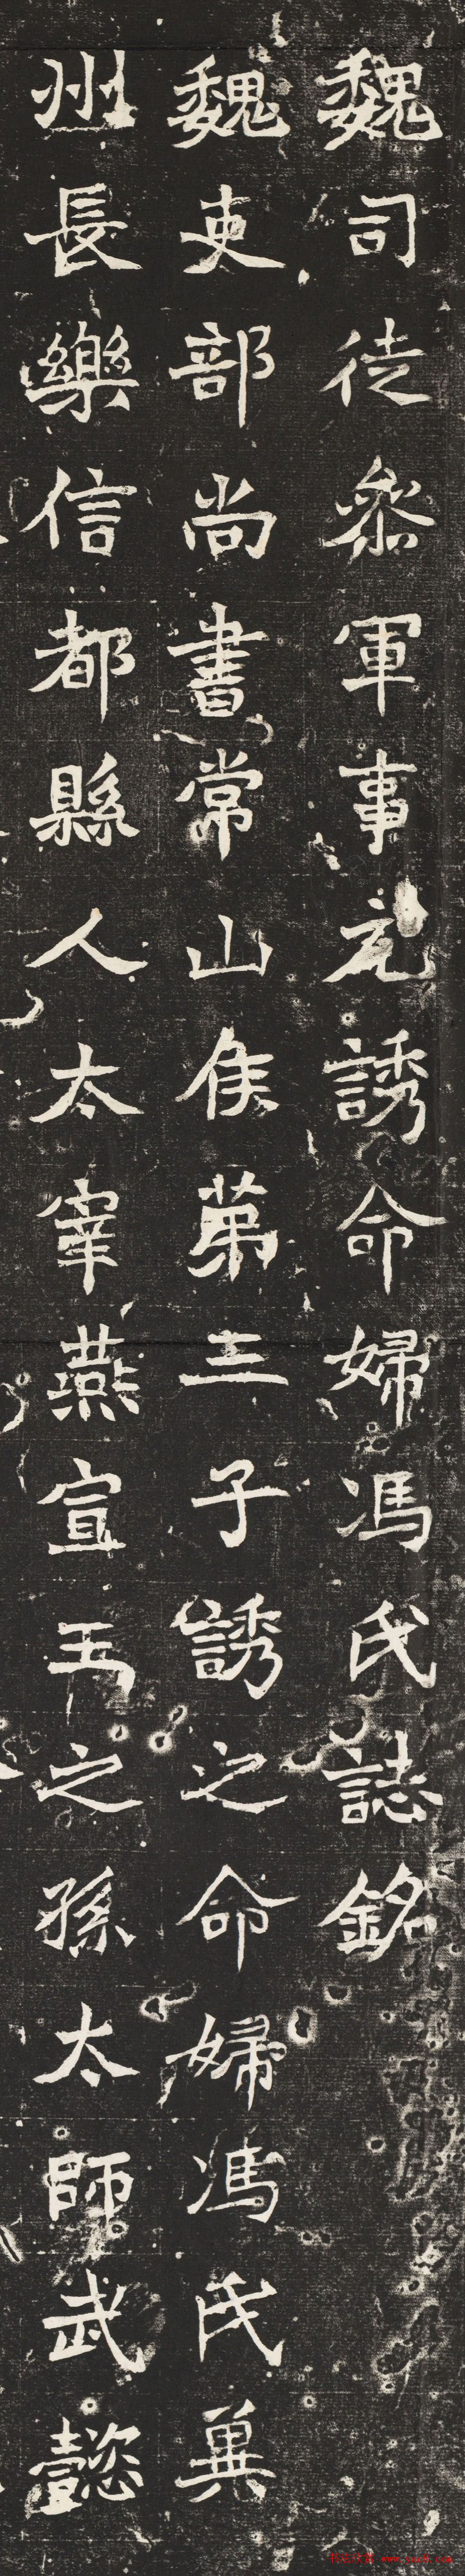 魏司徒參軍事元誘命婦馮氏誌銘
魏吏部尚書常山侯苐三子誘之命婦馮氏冀
州長樂信都縣人太宰燕宣王之孫太師武懿